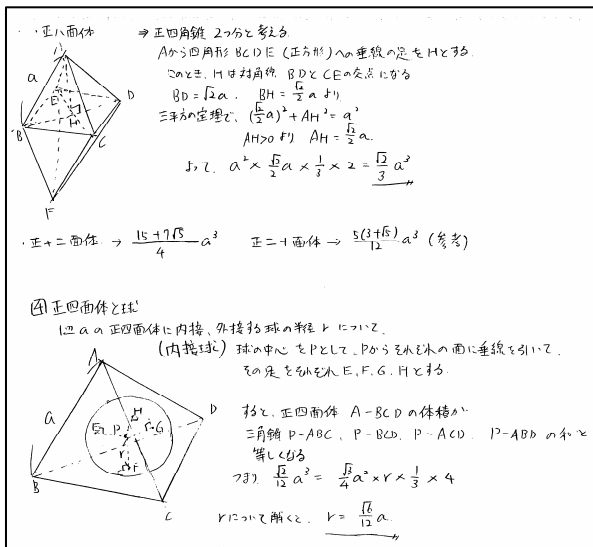 ・正八面体 ⇒ 正四角錐 2つ分と考える.
Aから四角形BCDE(正方形)への垂線の足をHとする.
このとき、Hは対角線 BDとCEの交点になる
BD=√2a. BH=√2/2 a より
三平方の定理で、(√2/2 a)²+AH²=a²
AH>0より AH=√2/2 a.
よって、a²×√2/2 a×1/3×2=√2/3 a³
A
a
E
D
B
H
C
F
・正十二面体 → 15+7√5/4 a³ 正二十面体 → 5(3+√5)/12 a³ (参考)
④正四面体と球
1辺aの正四面体に内接、外接する球の半径rについて.
(内接球) 球の中心をPとして、Pからそれぞれの面に垂線を引いて.
その足をそれぞれE.F.G.Hとする.
すると、正四面体 A-BCDの体積が
三角錐 P-ABC、P-BCD、P-ACD、P-ABDの和と
等しくなる
つまり √2/12 a³=√3/4 a²×r×1/3×4
rについて解くと、r=√6/12 a
A
a
H
E
P
r
G
D
r
F
B
C